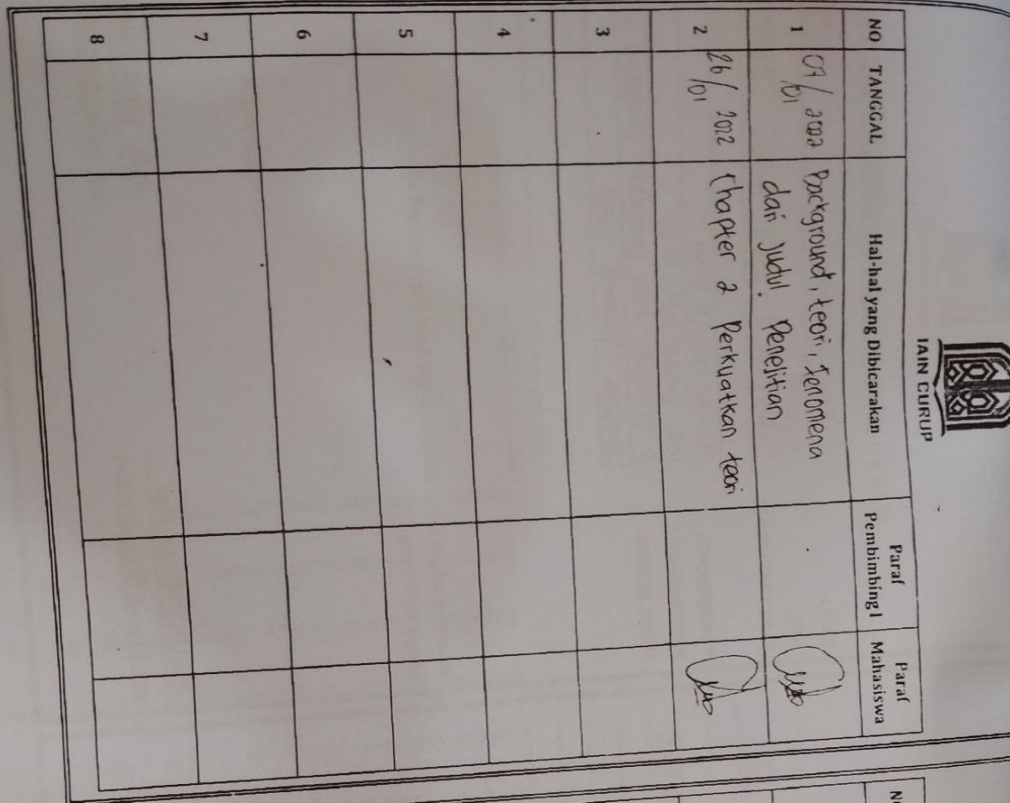 IAIN CURUP
NO TANGGAL Hal-hal yang Dibicarakan Paraf Pembimbing I Paraf Mahasiswa
1 07/01 2022 Background, teori, fenomena
dari judul penelitian
2 26/01 2022 Chapter 2 Perkuatkan teori
3
4
5
6
7
8